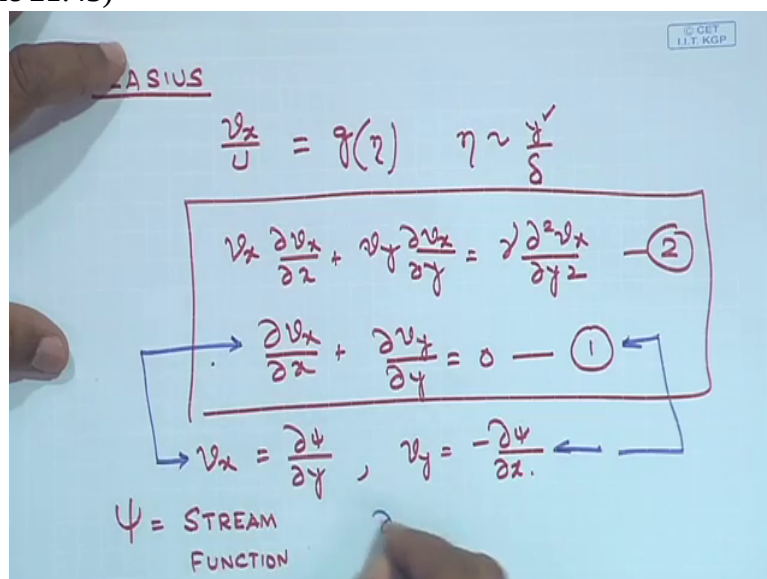 © CET
I.I.T. KGP
LASIUS
vx/U = g(η) η ~ y/δ
vx ∂vx/∂x + vy ∂vx/∂y = ν ∂²vx/∂y² — 2
∂vx/∂x + ∂vy/∂y = 0 — 1
vx = ∂ψ/∂y , vy = -∂ψ/∂x.
Ψ = STREAM
FUNCTION